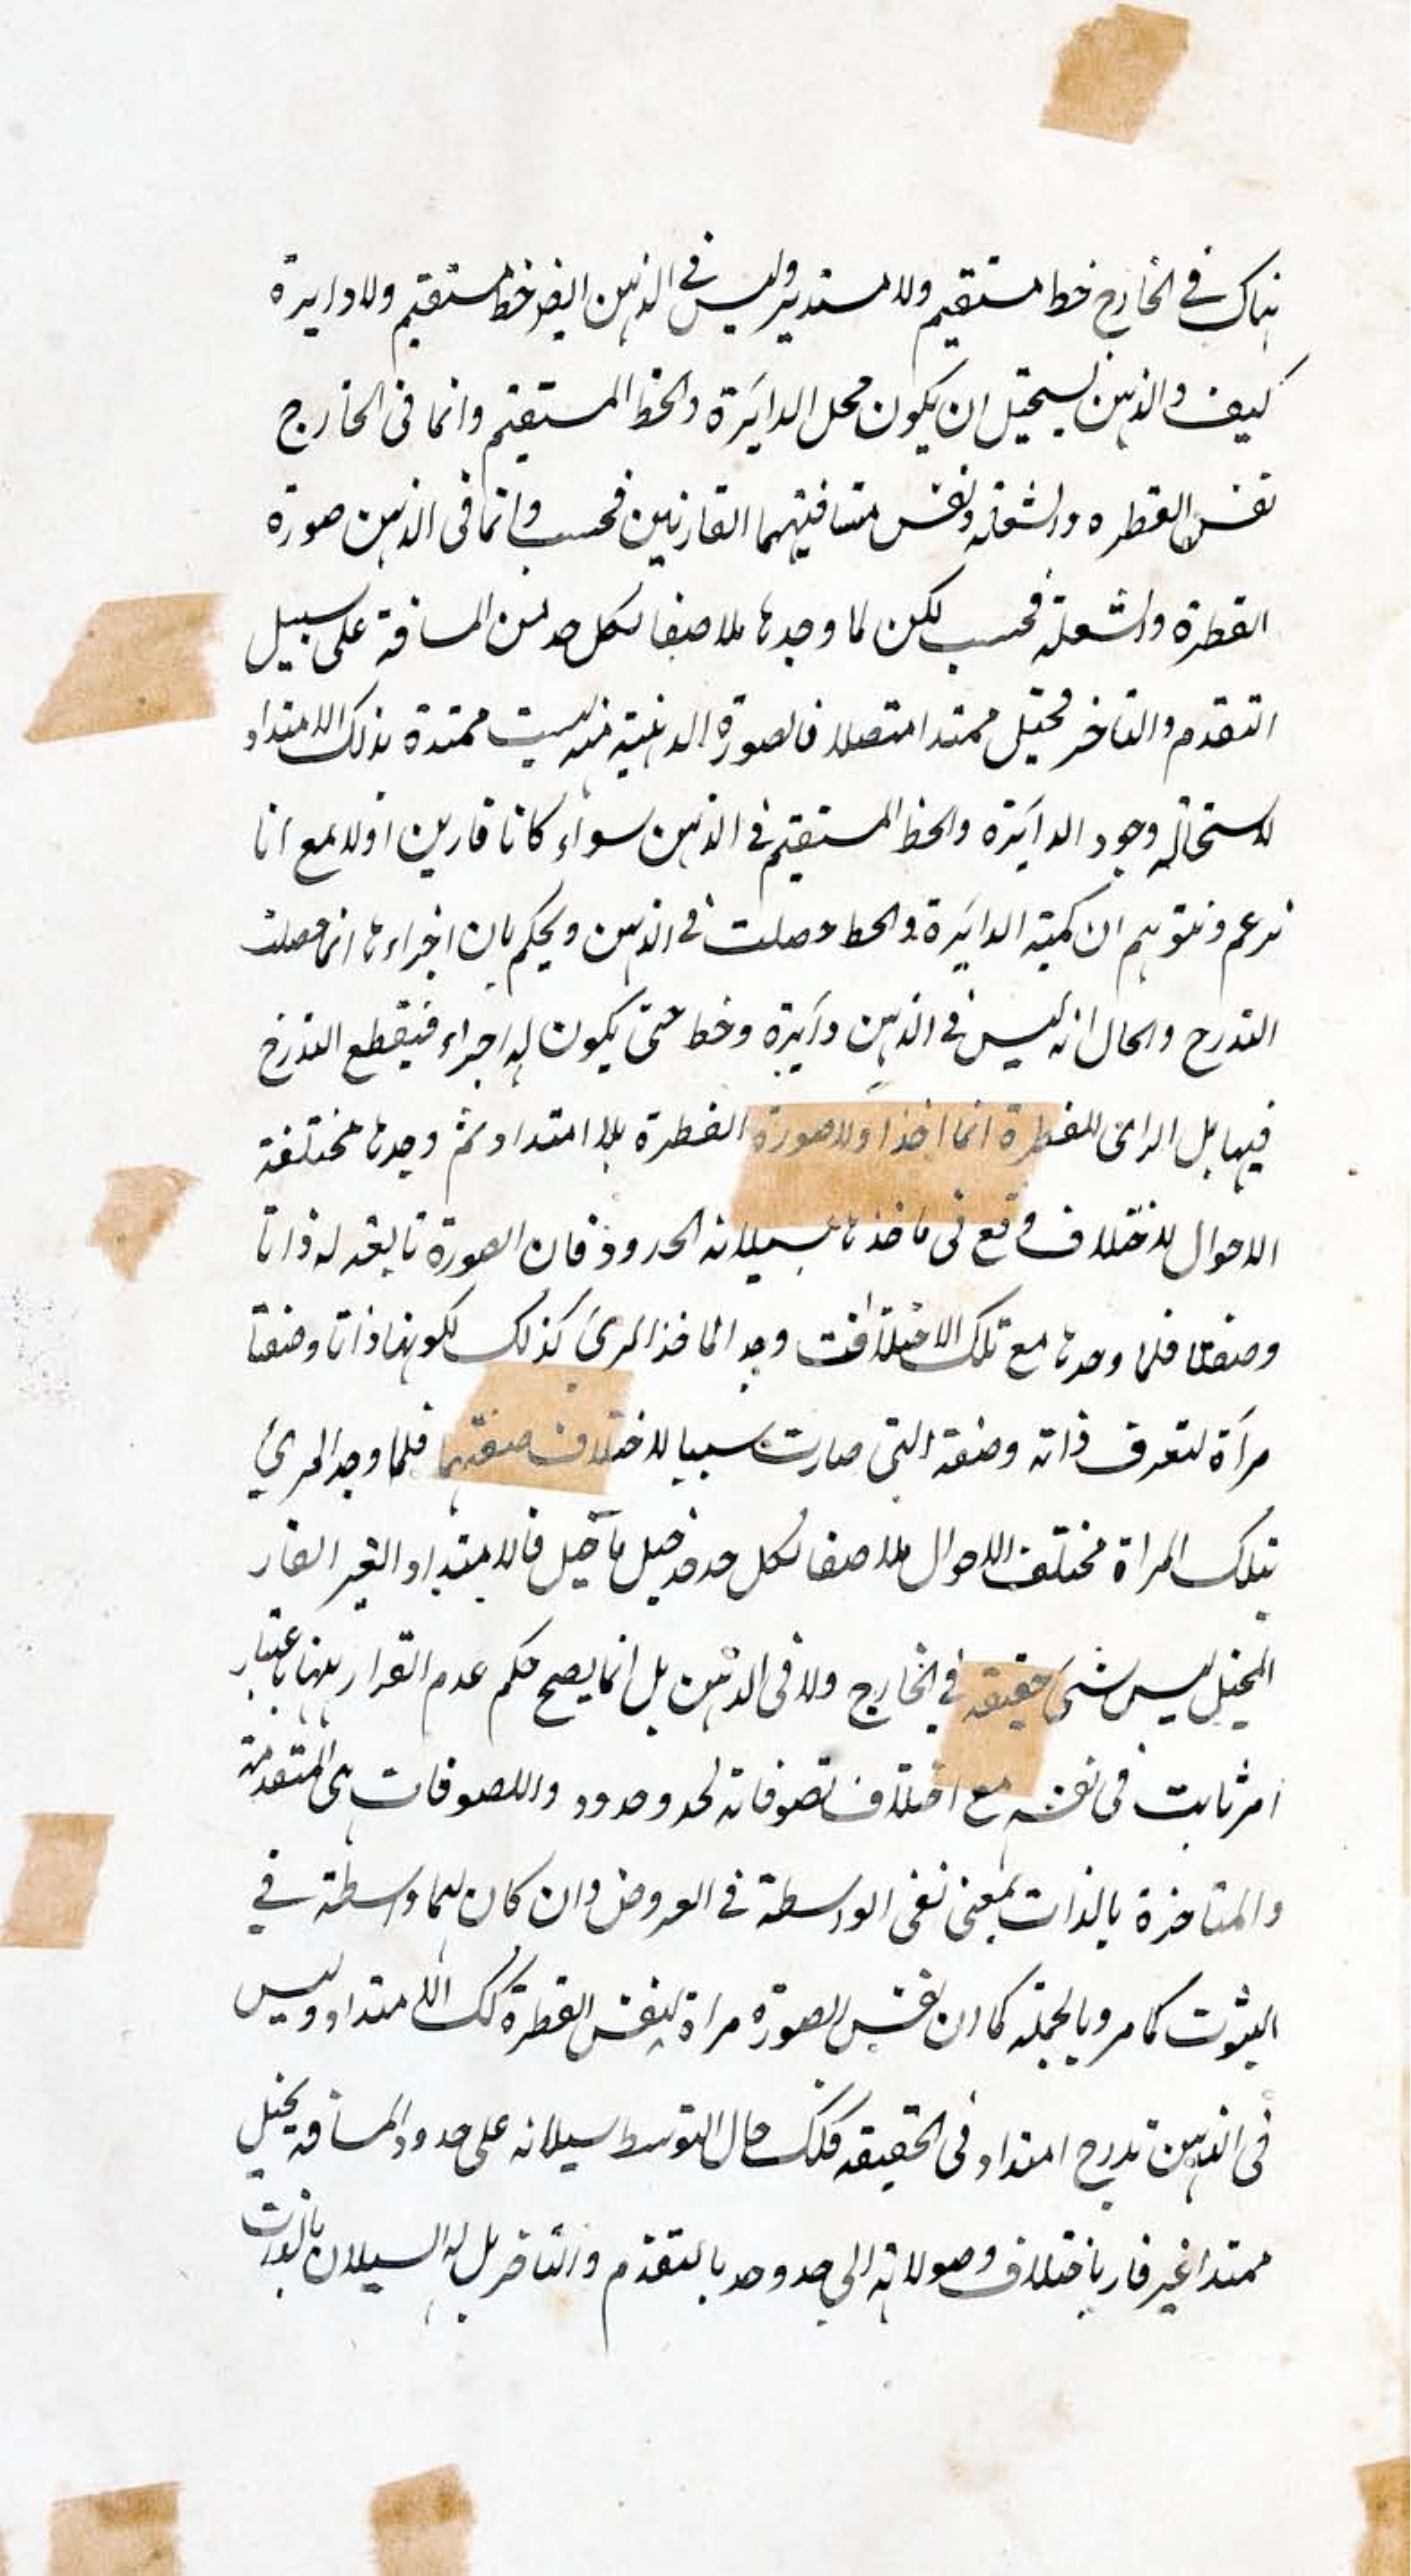 هناك في الخارج خط مستقيم ولا مستدير وليس في الذهن ايضا خط مستقيم ولا دايرة
كيف والذهن يستحيل ان يكون محل الدائرة والخط المستقيم وانما فى الخارج
نفس القطره والشعلة ونفس مسافتيهما القارتين فحسب وانما فى الذهن صورة
القطرة والشعلة فحسب لكن لما وجدها ملاصقا لكل حد من المسافة على سبيل
التقدم والتاخر فتخيل ممتدا متصلا فالصورة الذهنية منه ليست ممتدة بذلك الامتداد
لاستحالة وجود الدائرة والخط المستقيم في الذهن سواء كانا قارين اولا مع انا
نزعم ونتوهم ان كمية الدائرة والخط حصلت في الذهن ويحكم بان اجزاءها انما حصلت
التدرج والحال انه ليس في الذهن دائرة وخط حتى يكون له اجزاء فيقطع التدرج
فيها بل الرائى للقطرة انما اخذ اولا صورة القطرة بلا امتداد ثم وجدها مختلفة
الاحوال لاختلاف وقع فى ماخذها بسيلانه الحدود فان الصورة تابعة له ذاتا
وصفتا فلما وجدها مع تلك الاختلافات وجد الماخذ المرئ كذلك لكونها ذاتا وصفتا
مرآة لتعرف ذاته وصفته التى صارت سببا لاختلاف صفتها فلما وجد المرئ
بتلك المراة مختلف الاحوال ملاصقا لكل حد حد خيل ما خيل فالامتداد الغير القار
المخيل ليس شئ حقيقة في الخارج ولا فى الذهن بل انما يصح حكم عدم القرار ههنا باعتبار
امر ثابت فى نفسه مع اختلاف لصوقاته لحد وحدود واللصوقات هى المتقدمة
والمتاخرة بالذات بمعنى نفى الواسطة في العروض وان كان لهما واسطة في
الثبوت كما مر وبالجملة كما ان نفس الصورة مراة لنفس القطرة كك الامتداد وليس
فى الذهن تدرج امتداد فى الحقيقة فكك حال التوسط سيلانه على حدود المسافة يخيل
ممتدا غير قار باختلاف وصولاته الى حد وحد بالتقدم والتاخر بل له السيلان بالذات